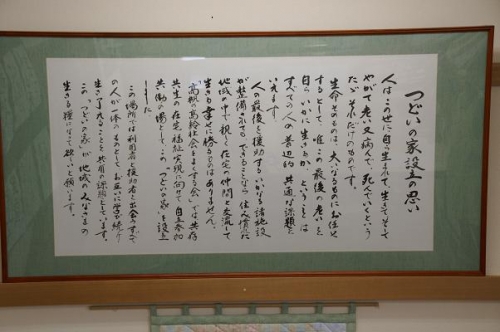 つどいの家設立の思い
人はこの世に自ら生まれて、生きてそして
やがて老い又病んで、死んでいくという
ただそれだけのものです。
生命そのものは、大いなるものにお任せ
するとして、唯この最後の老いを
自らいかに生きるか、ということは
すべての人の普遍的、共通な課題と
いえます。
人の最後を援助するいかなる諸施設
が整備されても、できることなら、住み慣れた
地域の中で親しく在宅の仲間と交流して
生きる幸せに勝るものはありません。
「高齢社会をよくする会」では、共存
共生の在宅福祉実現に向けて自立参加
共働の場としてこの「つどいの家」を設立
しました
この場所では利用者と援助者と出会うすべて
の人が一体のものとしてお互いに学び続け
生きて在ることを共通の課題としています。
この「つどいの家」が地域の人々みなさまの
生きる糧になって欲しいと願います。